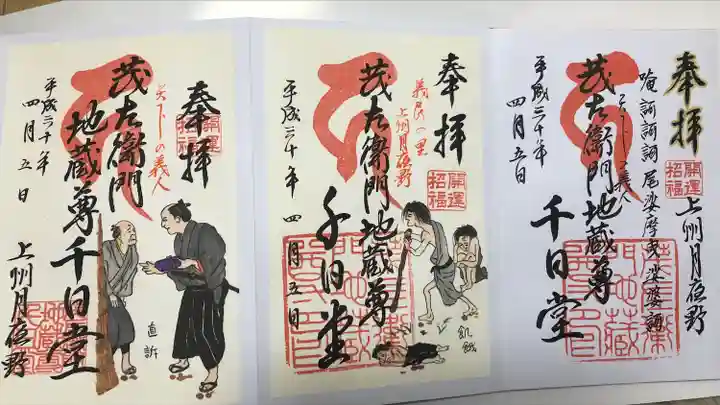 奉拝
開運
招福
天下の義人
茂左衛門
地蔵尊千日堂
平成三十年
四月五日
上州月夜野
直訴
奉拝
開運
招福
義民の里
上州月夜野
茂左衛門地蔵尊
千日堂
平成三十年四月五日
飢餓
奉拝
開運
招福
上州月夜野
唵訶訶訶尾娑摩曳娑婆訶
天下の義人
茂左衛門地蔵尊
千日堂
平成三十年
四月五日